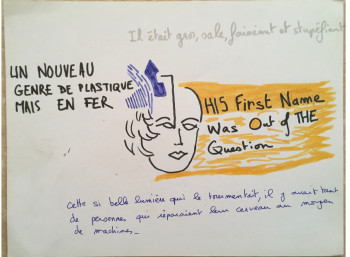 Il était gros, sale, fainéant et stupéfiant
UN NOUVEAU
GENRE DE PLASTIQUE
MAIS EN FER
HIS First Name
Was Out of THE
Question
Cette si belle lumière qui le tourmentait, il y avait tant
de personnes qui réparaient leur cerveau au moyen
de machines_